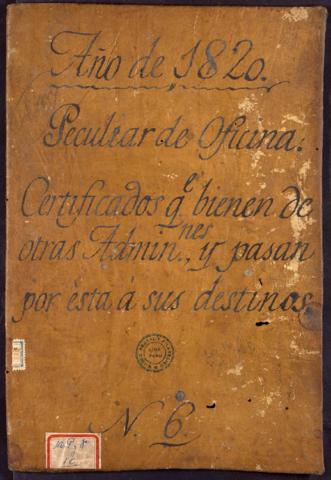 Año de 1820.
Peculiar de Oficina.
Certificados qe bienen de
otras Adminnes., y pasan
por ésta á sus destinos.
LIMA
PERU
N. 6.